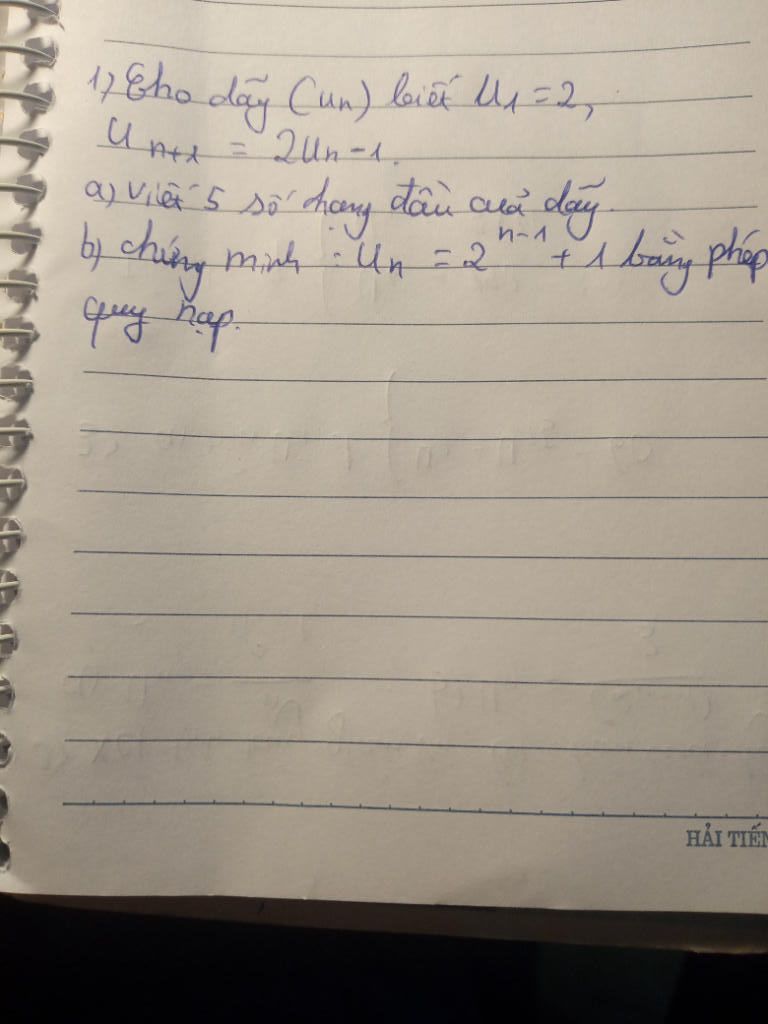 1) Cho dãy (un) biết U1 = 2,
U n+1 = 2Un - 1.
a) Viết 5 số hạng đầu của dãy.
b) chứng minh : Un = 2^n-1 + 1 bằng phép
quy nạp.
HẢI TIẾN